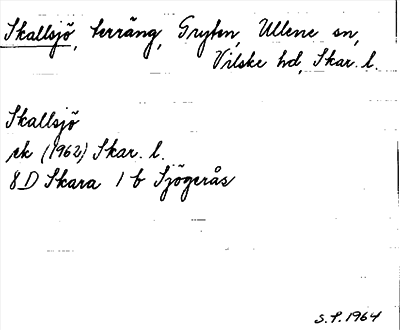 Skallsjö, terräng, Gryten, Ullene sn,
Vilske hd, Skar. l.
Skallsjö
ek (1962) Skar. l.
8 D Skara 1 b Sjögerås
S.P. 1964